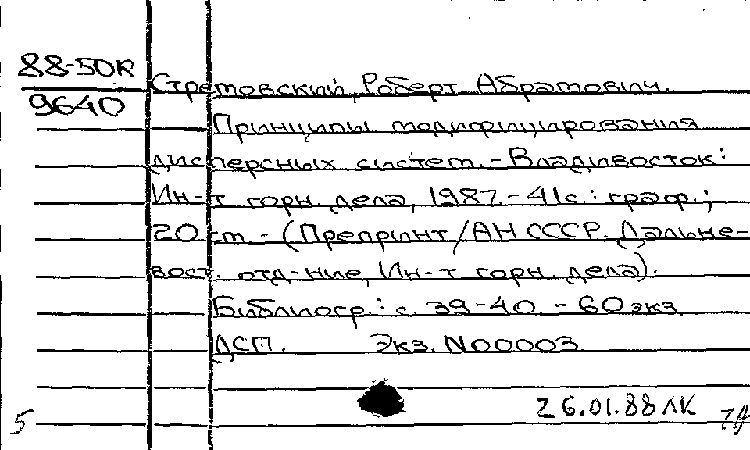 88-50К
9640
Стретовский, Роберт Абрамович.
Принципы модифицирования
дисперсных систем. - Владивосток:
Ин-т горн. дела, 1987. - 41с.: граф.;
20 см. - (Препринт/АН СССР. Дальне-
вост. отд-ние, Ин-т горн. дела).
Библиогр.: с. 39-40. - 60 экз.
ДСП. Экз. N00003
26.01.88 ЛК
5